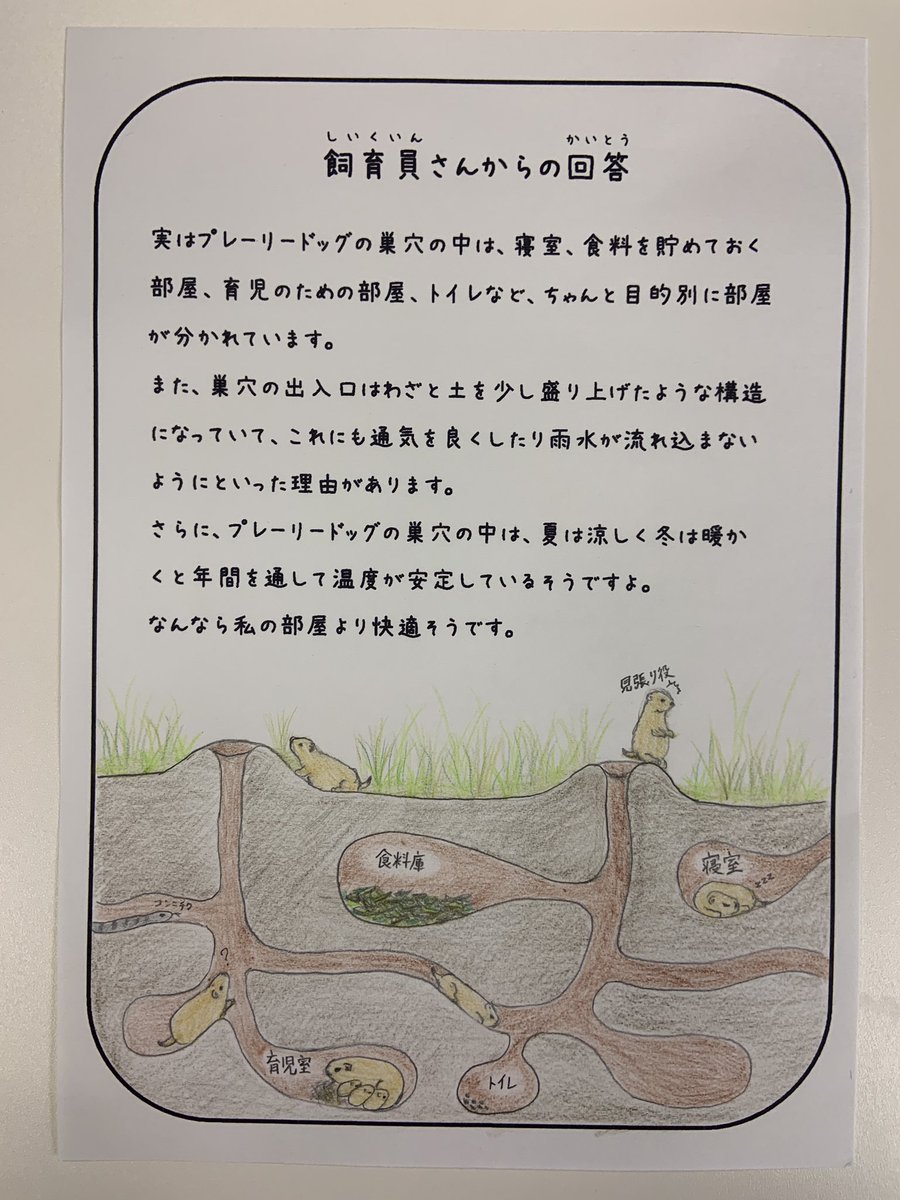 しいくいん　かいとう
飼育員さんからの回答
実はプレーリードッグの巣穴の中は、寝室、食料を貯めておく
部屋、育児のための部屋、トイレなど、ちゃんと目的別に部屋
が分かれています。
また、巣穴の出入口はわざと土を少し盛り上げたような構造
になっていて、これにも通気を良くしたり雨水が流れ込まない
ようにといった理由があります。
さらに、プレーリードッグの巣穴の中は、夏は涼しく冬は暖か
くと年間を通して温度が安定しているそうですよ。
なんなら私の部屋より快適そうです。
見張り役
食料庫
寝室
zzz
コンニチワ
?
育児室
トイレ